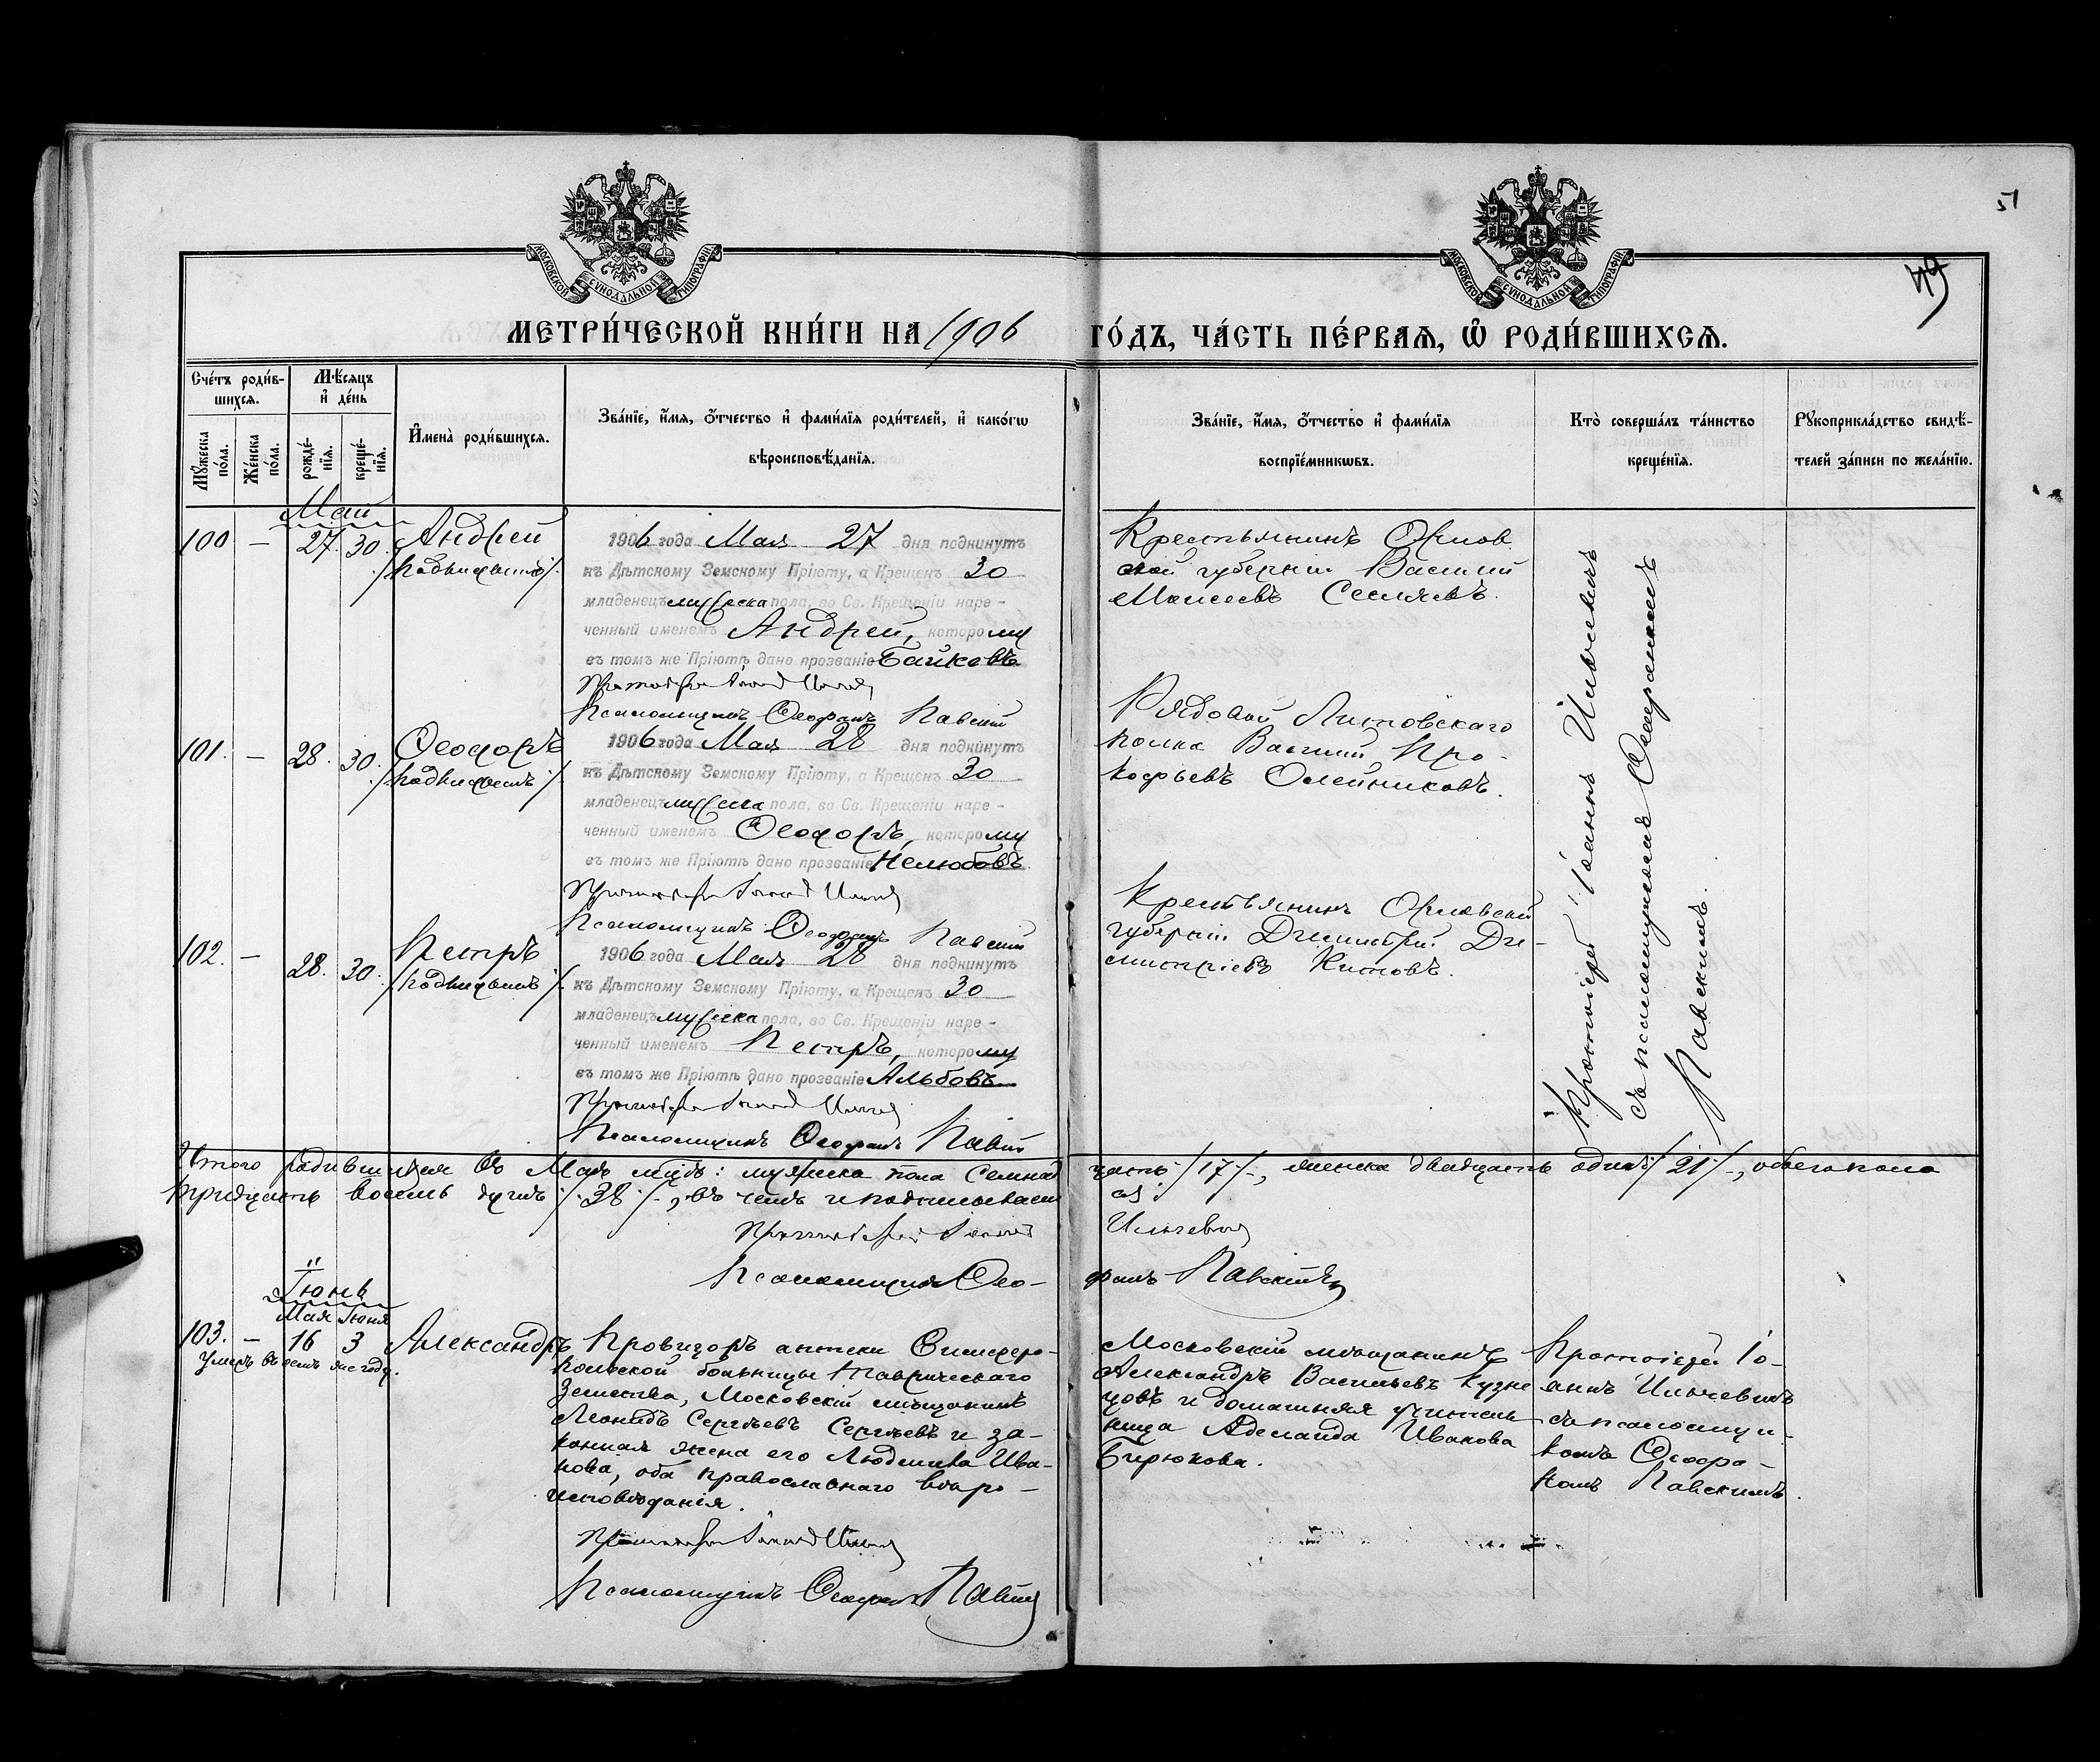 51
49
МОСКОВСКОЙ СѴНОДАЛЬНОЙ ТИПОГРАФІИ
МОСКОВСКОЙ СѴНОДАЛЬНОЙ ТИПОГРАФІИ
МЕТРИ́ЧЕСКОЙ КНИ́ГИ НА 1906 ГО́ДЪ, ЧА́СТЬ ПЕ́РВАѦ, Ѡ҆ РОДИ́ВШИХСѦ.
Сче́тъ роди́в-
шихсѧ.
Мꙋ́жеска по́ла.
Же́нска по́ла.
Мѣ́сѧцъ и҆ де́нь
рожде́-нїѧ.
креще́-нїѧ.
И҆мена̀ роди́вшихсѧ.
Зва́нїе, и҆́мѧ, ѻ҆́тчество и҆ фами́лїѧ роди́телей, и҆ како́гѡ
вѣроисповѣ́данїѧ.
Зва́нїе, и҆́мѧ, ѻ҆́тчество и҆ фами́лїѧ
воспрїе́мникѡвъ.
Кто̀ соверша́лъ та́инство
креще́нїѧ.
Рꙋкоприкла́дство свидѣ́-
телей за́писи по жела́нїю.
Май
100 — 27. 30. Андрей
/подкидышъ/.
1906 года Мая 27 дня подкинутъ
къ Дѣтскому Земскому Пріюту, а Крещенъ 30
младенецъ мужеска пола, во Св. Крещеніи наре-
ченный именемъ Андрей, которому
въ томъ же Пріютѣ дано прозваніе Байковъ
Псаломщикъ Ѳеофанъ Павскій
Крестьянинъ Орлов
ской губерніи Василій
Моисеевъ
101. — 28. 30. Ѳеодоръ
/подкидышъ/.
1906 года Мая 28 дня подкинутъ
къ Дѣтскому Земскому Пріюту, а Крещенъ 30
младенецъ мужеска пола, во Св. Крещеніи наре-
ченный именемъ Ѳеодоръ, которому
въ томъ же Пріютѣ дано прозваніе Нелюбовъ
Псаломщикъ Ѳеофанъ Павскій
Рядовой Литовскаго
полка Василій Про-
кофьевъ Олейниковъ.
102. — 28. 30. Петръ
/подкидышъ/.
1906 года Мая 28 дня подкинутъ
къ Дѣтскому Земскому Пріюту, а Крещенъ 30
младенецъ мужеска пола, во Св. Крещеніи наре-
ченный именемъ Петръ, которому
въ томъ же Пріютѣ дано прозваніе Альбовъ
Псаломщикъ Ѳеофанъ Павскій
Крестьянинъ Орловской
губерніи Димитрій Ди-
митріевъ Китовъ.
Протоіерей Іоаннъ Ильчевичъ
съ псаломщикомъ Ѳеофаномъ
Павскимъ.
Итого родившихся въ Маѣ мѣсяцѣ: мужеска пола семнад
цать /17/-, женска двадцать одинъ /21/-, обоего пола
тридцать восемь душъ /38/-, въ чемъ и подписываем
ся:
Ильчевичъ
Псаломщикъ Ѳео-
фанъ Павскій
Іюнь
Мая Іюня
103. — 16 3 Александръ
Умеръ въ семъ же году.
Провизоръ аптеки Симферо-
польской больницы Таврическаго
Земства, Московскій мѣщанинъ
Леонидъ Сергѣевъ Сергѣевъ и за-
конная жена его Людмила Ива-
нова, оба православнаго вѣро-
исповѣданія.
Псаломщикъ Ѳеофанъ Павскій
Московскій мѣщанинъ
Александръ Васильевъ Кузне
цовъ и домашняя учитель
ница Аделаида Иванова
Бирюкова.
Протоіерей Іо-
аннъ Ильчевичъ
съ псаломщи-
комъ Ѳеофа-
номъ Павскимъ.